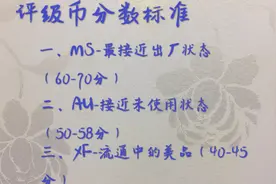 评级币分数标准
一、MS-最接近出厂状态
（60-70分）
二、AU-接近未使用状态
（50-58分）
三、XF-流通中的美品（40-45
分）